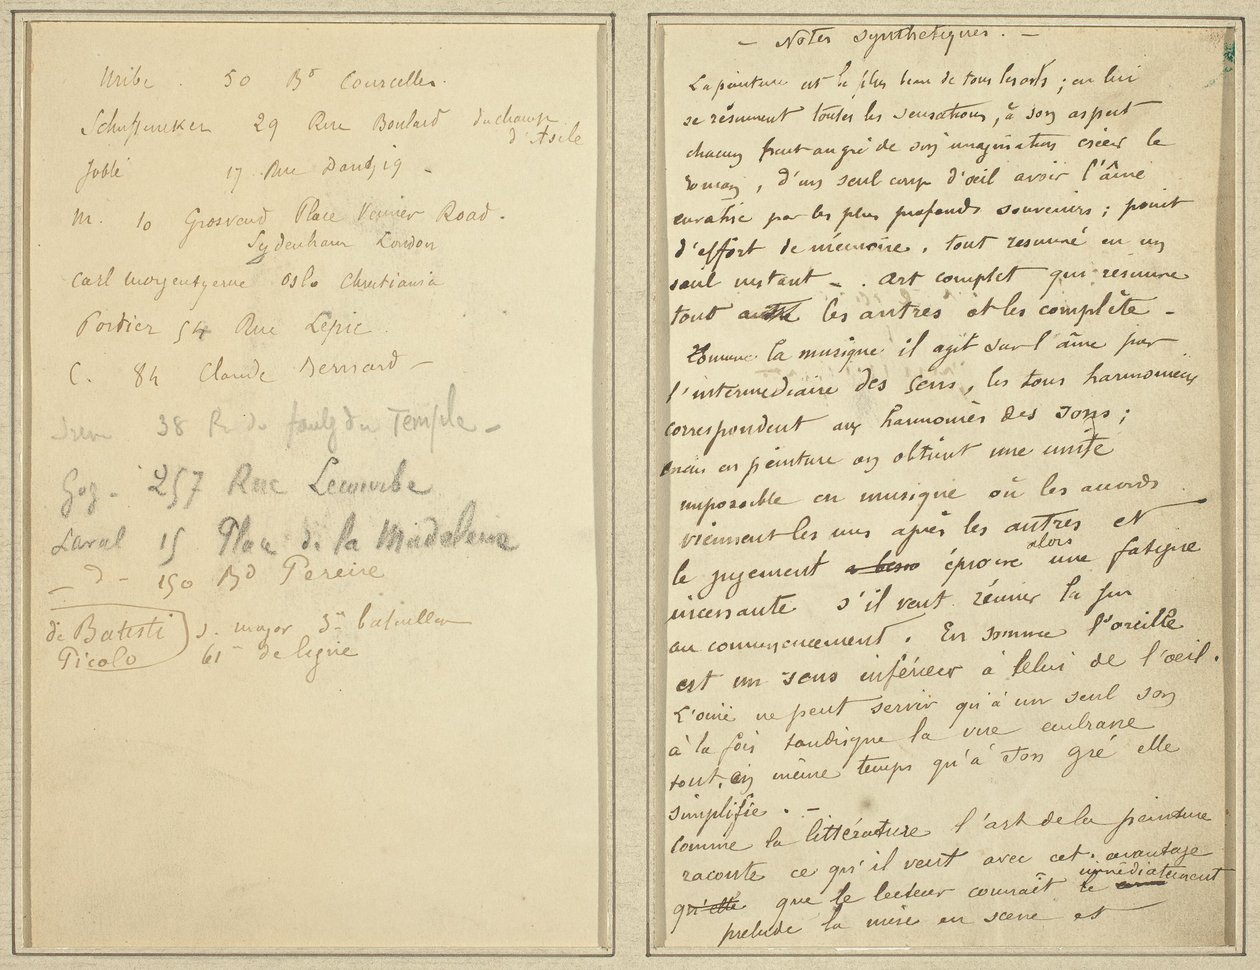 Uribe 50 Bd Courcelles.
Schuffeneker 29 Rue Boulard du champ
d'Asile
Jobbé 17 Rue Dantzig -
M. 10 Grosvenor Place Venner Road.
Sydenham London
Carl morgenstjerne Oslo Christiania
Portier 54 Rue Lepic
C. 84 Claude Bernard -
38 R. du faubg du Temple -
257 Rue Lecourbe
Laval 15 Place de la Madeleine
- d - 150 Bd Pereire
de Batisti s. major 3e bataillon
Picolo 61e de ligne
- Notes synthetiques. -
La peinture est le plus beau de tous les arts ; en lui
se résument toutes les sensations, à son aspect
chacun peut au gré de son imagination créer le
roman, d'un seul coup d'oeil avoir l'âme
envahie par les plus profonds souvenirs ; point
d'effort de mémoire, tout resumé en un
seul instant -. Art complet qui resume
tout autre les autres et les complète -
Comme la musique il agit sur l'âme par
l'intermediaire des sens, les tons harmonieux
correspondent aux harmonies des sons ;
mais en peinture on obtient une unité
impossible en musique où les accords
viennent les uns après les autres et
le jugement a beso éprouve alors une fatigue
incessante s'il veut réunir la fin
au commencement. En somme l'oreille
est un sens inférieur à celui de l'oeil.
L'ouie ne peut servir qu'à un seul son
à la fois tandisque la vue embrasse
tout, en même temps qu'à son gré elle
simplifie. -
Comme la littérature l'art de la peinture
raconte ce qu'il veut avec cet avantage
qu'elle que le lecteur connait immédiatement le
prelude la mise en scene et